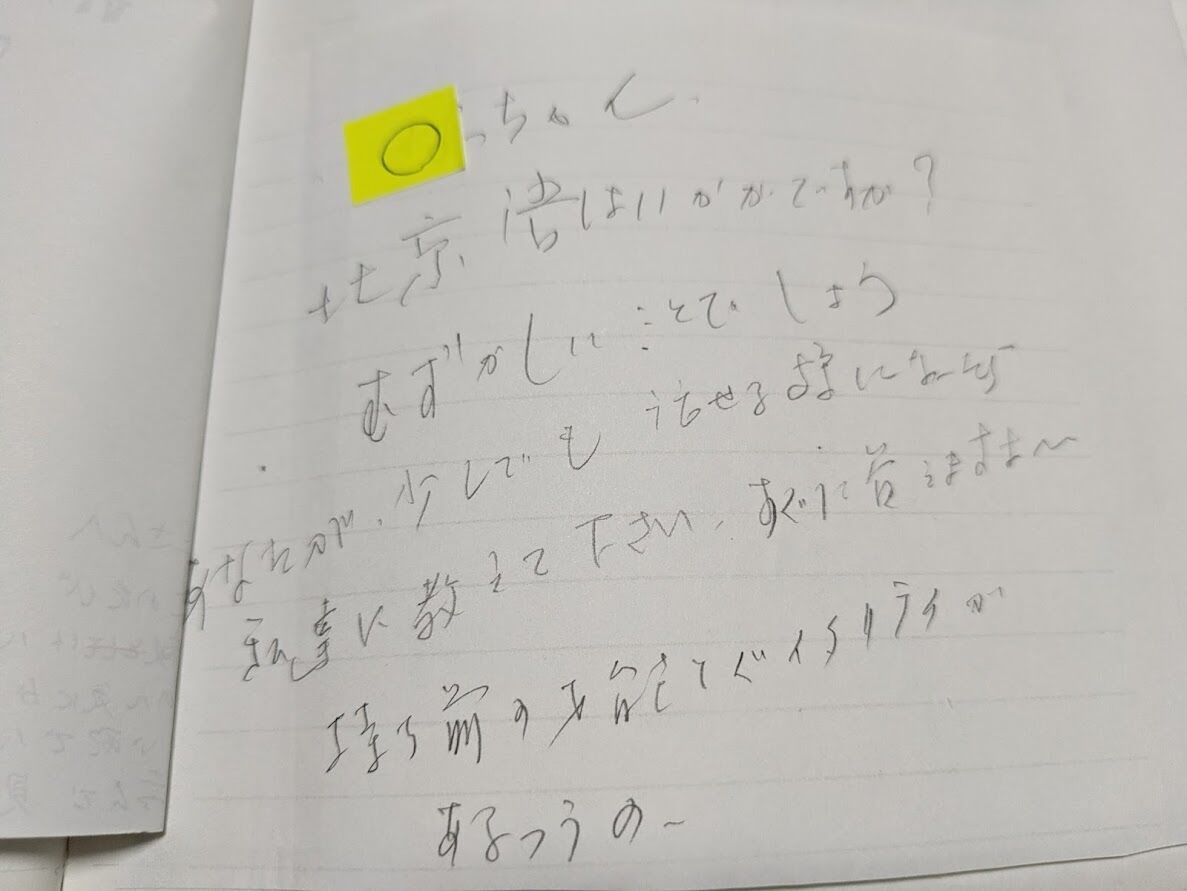 ○っちゃん.
北京語はいかがですか?
むずかしいことでしょう
あなたが、少しでも話せる様になったら
私達に教えて下さい、すぐに答えますよ〜
持ち前の才能とバイタリティが
あるっうの〜